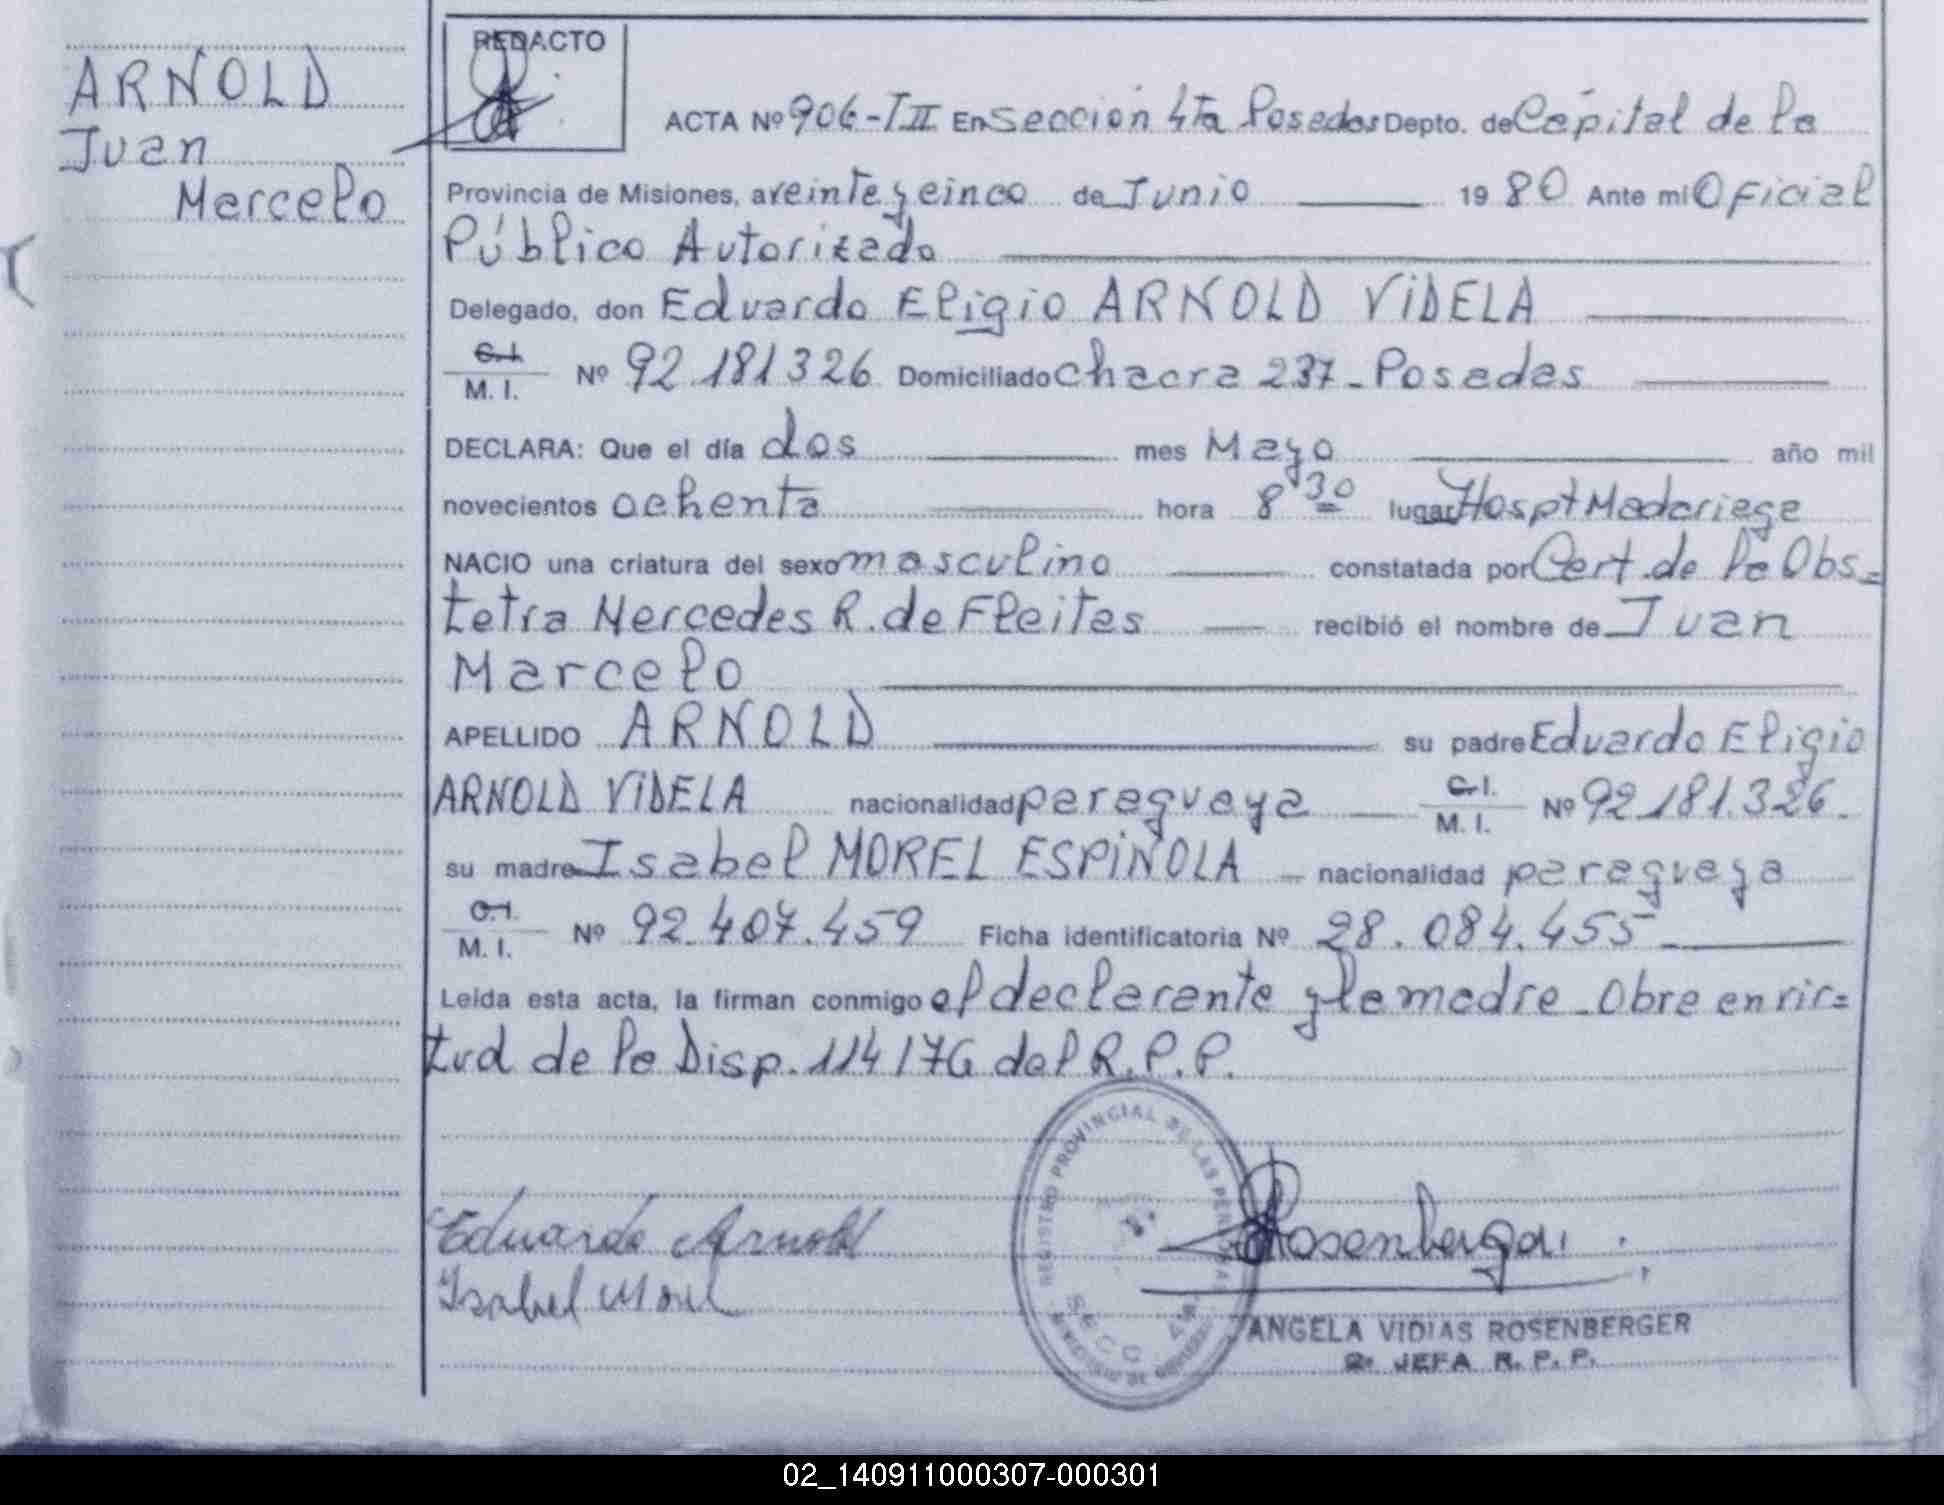 ARNOLD
Juan
Marcelo
REDACTO
ACTA Nº 906-TII En Sección 4ta Posadas Depto. de Capital de la
Provincia de Misiones, a veinte y cinco de Junio 19 80 Ante mi Oficial
Público Autorizado
Delegado, don Eduardo Eligio ARNOLD VIDELA
C.I. M. I. Nº 92.181326 Domiciliado Chacra 237- Posadas
DECLARA: Que el día dos mes Mayo año mil
novecientos ochenta hora 8'30 lugar Hospt Madariaga
NACIO una criatura del sexo masculino constatada por Cert. de la Obs=
tetra Mercedes R. de Fleitas recibió el nombre de Juan
Marcelo
APELLIDO ARNOLD su padre Eduardo Eligio
ARNOLD VIDELA nacionalidad paraguaya C.I. M. I. Nº 92.181.326.
su madre Isabel MOREL ESPINOLA nacionalidad paraguaya
C.I. M. I. Nº 92.407.459 Ficha identificatoria Nº 28.084.455
Leida esta acta, la firman conmigo el declarante y la madre - Obra en vir=
tud de la Disp. 114/76 del R.P.P.
REGISTRO PROVINCIAL DE LAS PERSONAS
SECC 4a.
Eduardo Arnold
Isabel Morel
Rosenberger
ANGELA VIDIAS ROSENBERGER
2º JEFA R. P. P.
02_140911000307-000301